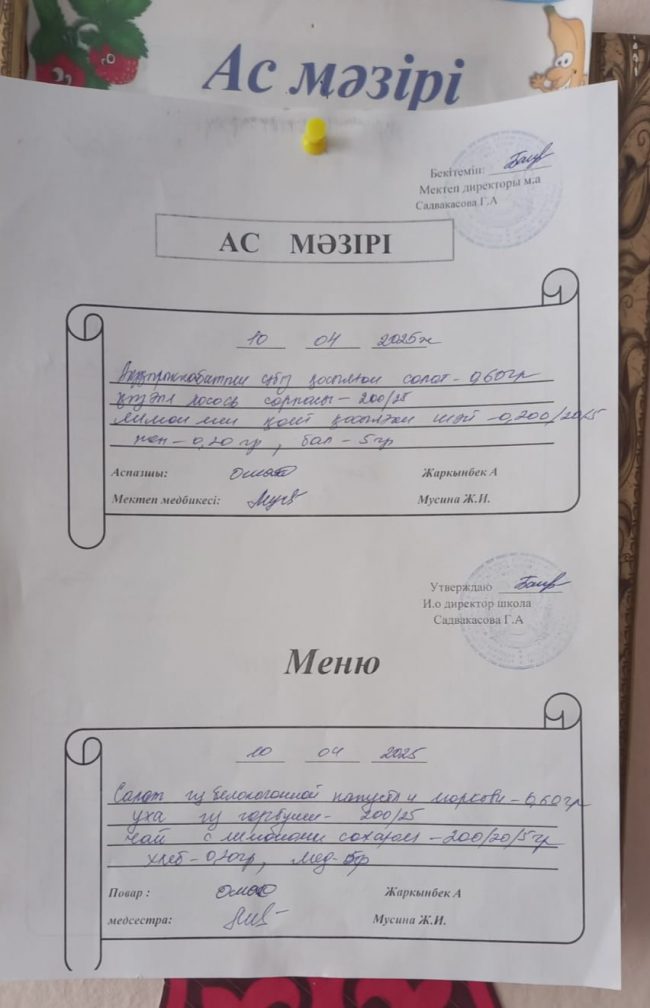 Ас мәзірі
Бекітемін:
Мектеп директоры м.а
Садвакасова Г.А
АС МӘЗІРІ
10 04 2025ж
салат - 0,60гр
лосось сорпасы - 200/25
лимон мен қант қосылған шәй - 0,200/20/5
нан - 0,20 гр, бал - 5гр
Аспазшы: Жаркынбек А
Мектеп медбикесі: Мусина Ж.И.
Утверждаю
И.о директор школа
Садвакасова Г.А
Меню
10 04 2025
Салат из белокочанной капусты и моркови - 0,60гр
уха из горбуши - 200/25
чай с лимоном сахаром - 200/20/5гр
хлеб - 0,20гр, мед - 5гр
Повар : Жаркынбек А
медсестра: Мусина Ж.И.